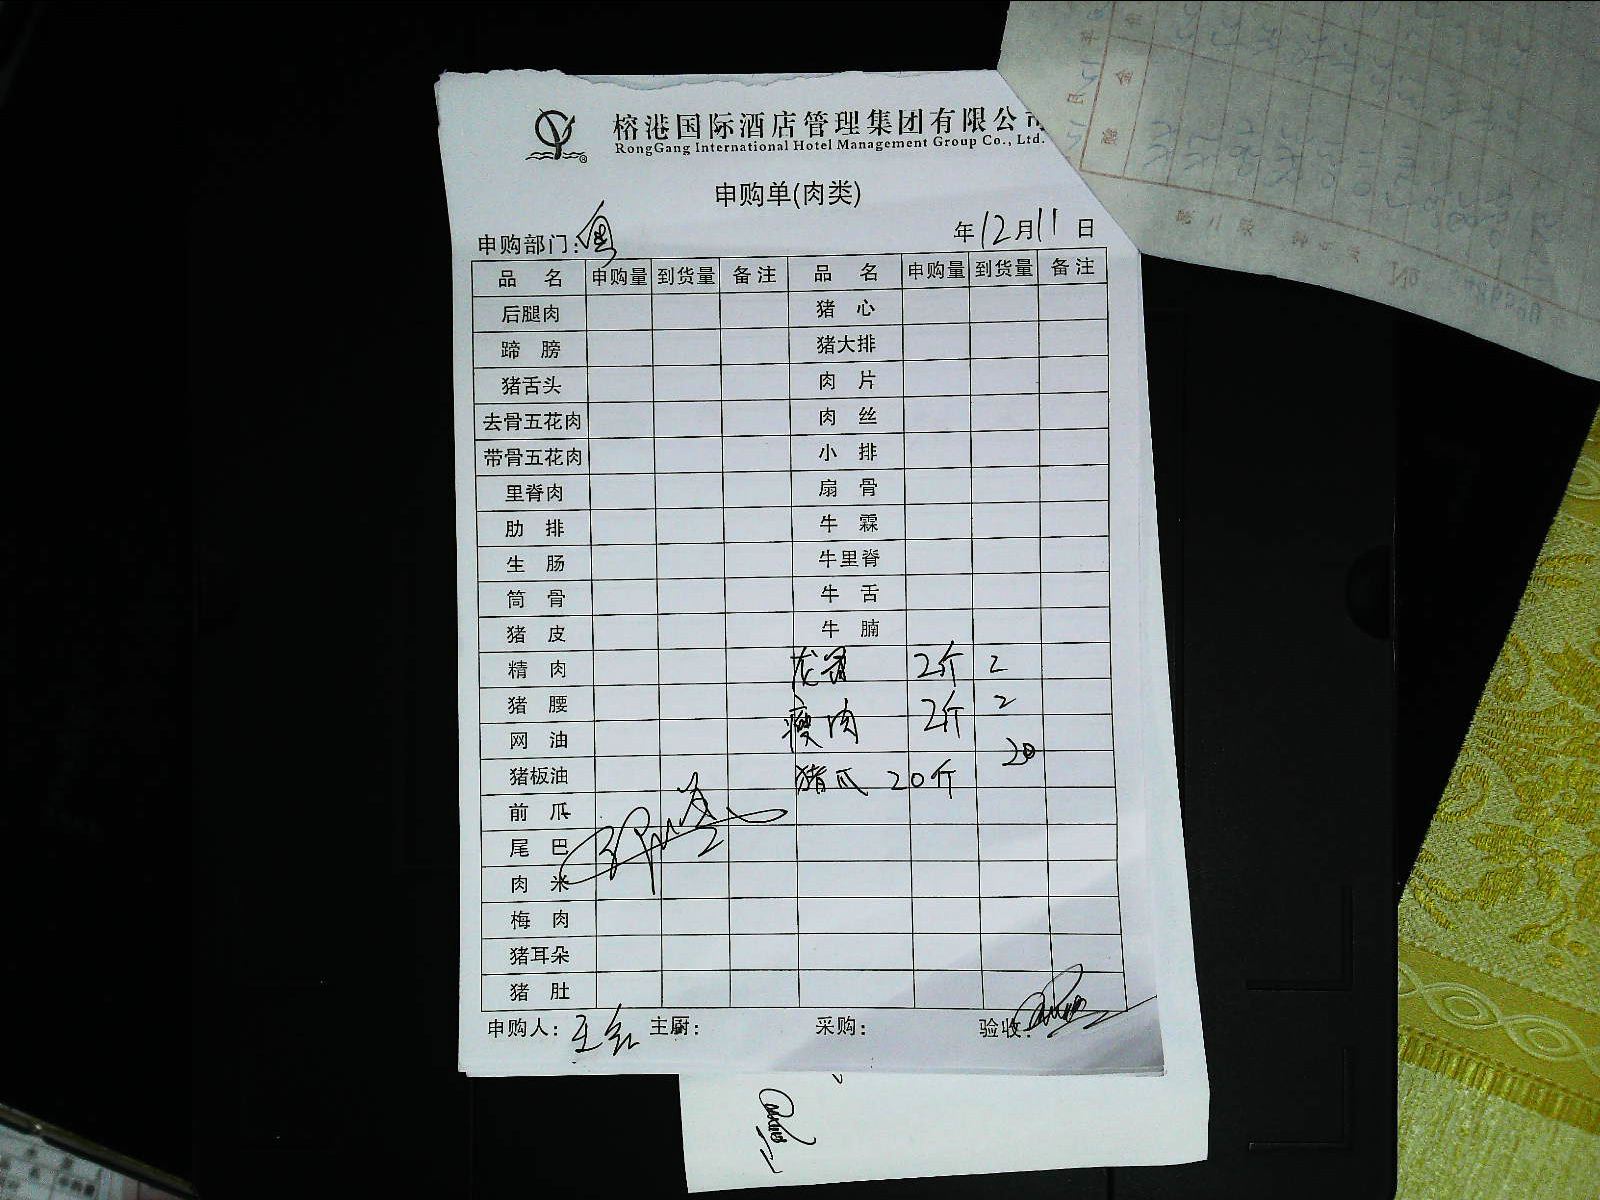 榕港国际酒店管理集团有限公司
RongGang International Hotel Management Group Co., Ltd.
申购单(肉类)
申购部门：粤 年12月11日
品名 申购量 到货量 备注 品名 申购量 到货量 备注
后腿肉 猪心
蹄膀 猪大排
猪舌头 肉片
去骨五花肉 肉丝
带骨五花肉 小排
里脊肉 扇骨
肋排 牛霖
生肠 牛里脊
筒骨 牛舌
猪皮 牛腩
精肉 龙骨 2斤 2
猪腰 瘦肉 2斤 2
网油 20
猪板油 猪爪 20斤
前爪
尾巴
肉米
梅肉
猪耳朵
猪肚
申购人： 主厨： 采购： 验收：